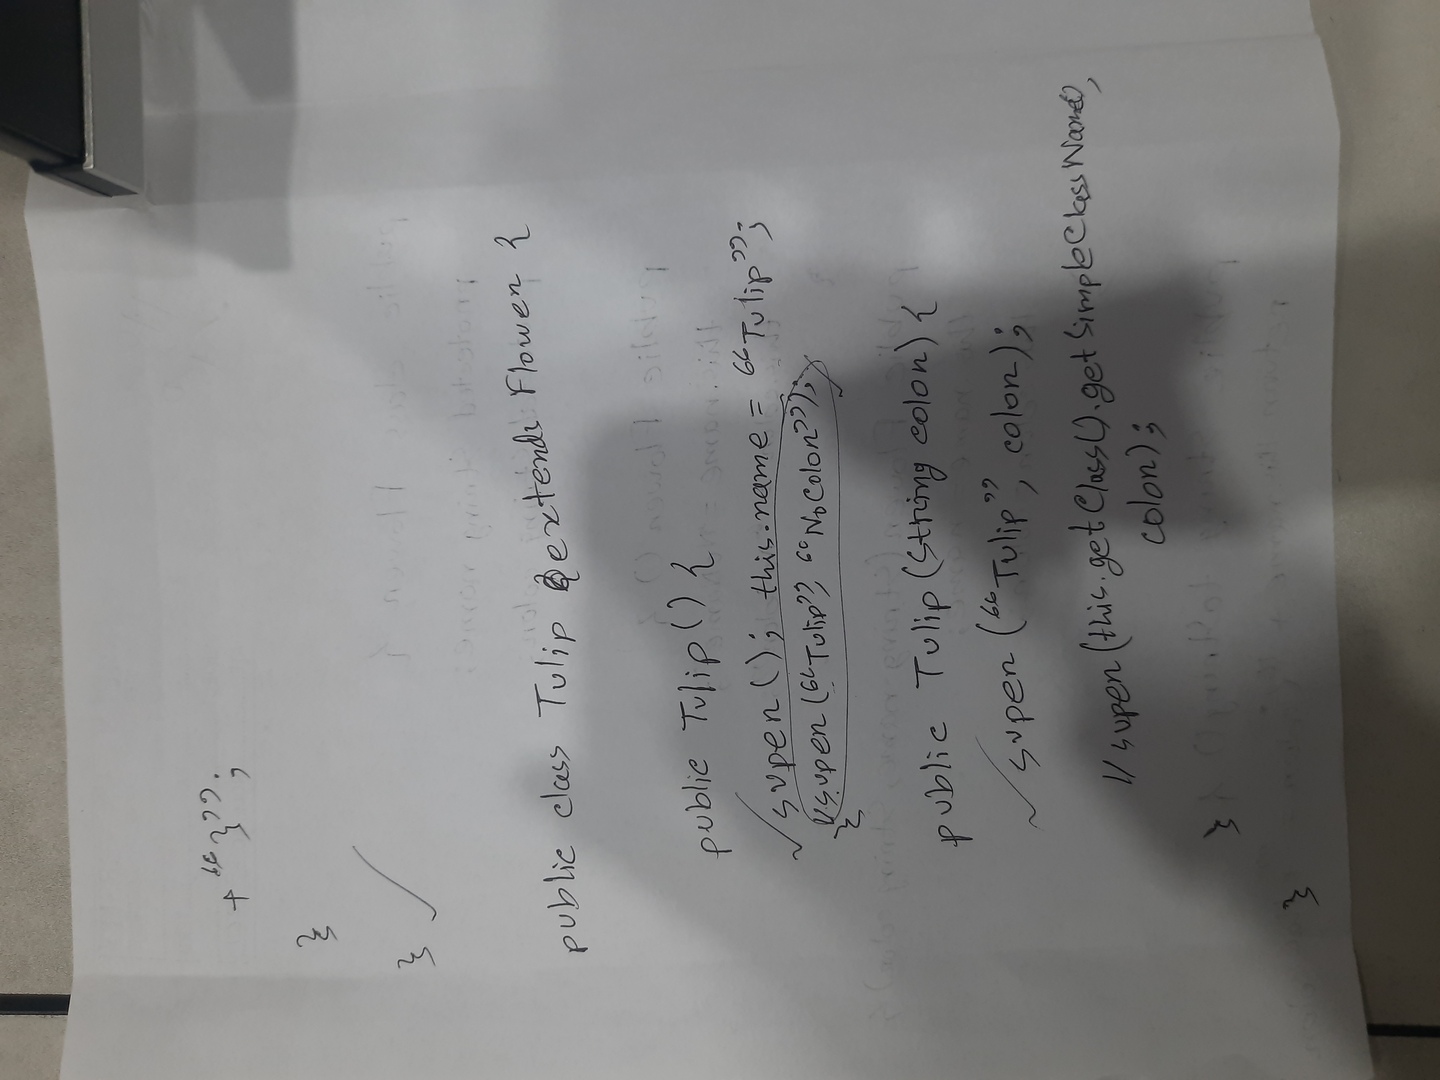 + “}”;
}
}
public class Tulip extends Flower {
public Tulip() {
super(); this.name = “Tulip”;
//super(“Tulip”, “NoColor”);
}
public Tulip(String color) {
super (“Tulip”, color);
// super(this.getClass().getSimpleClassName(),
color);
}
}